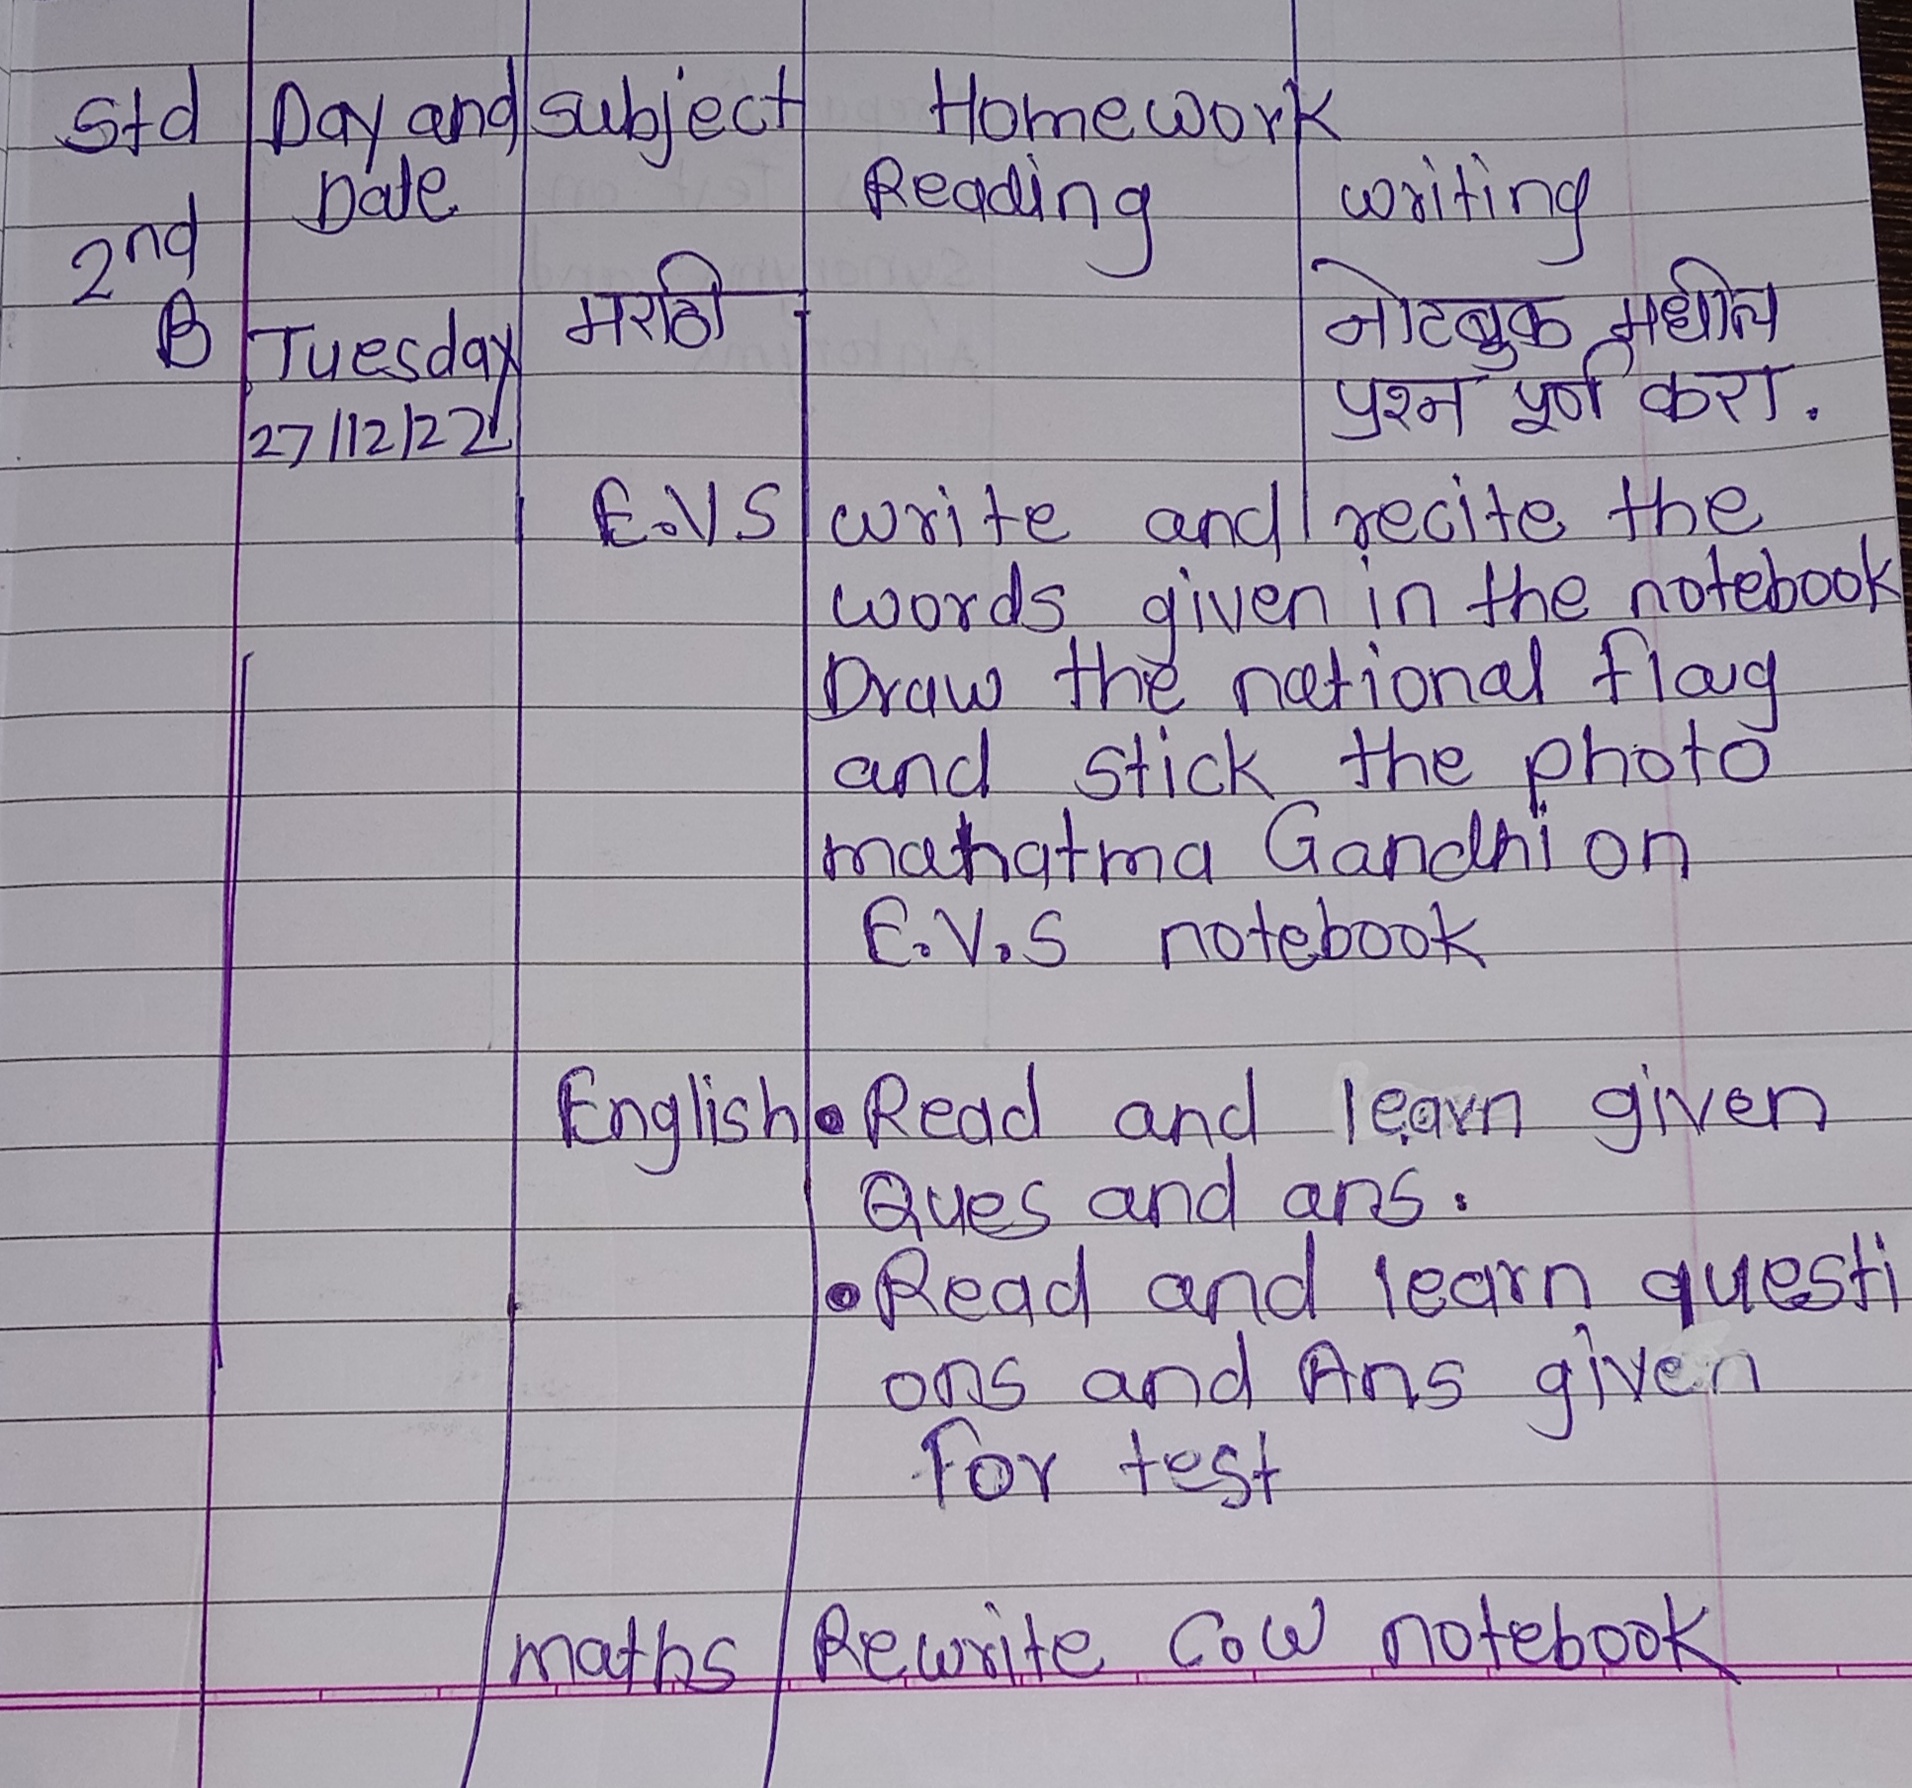 Std Day and subject Homework
Date Reading writing
2nd
B Tuesday मराठी नोटबुक मधील
27/12/22 प्रश्न पूर्ण करा.
E.V.S write and recite the
words given in the notebook
Draw the national flag
and stick the photo
mahatma Gandhi on
E.V.S notebook
English • Read and learn given
Ques and ans.
• Read and learn questi
ons and Ans given
For test
maths Rewrite C.W notebook